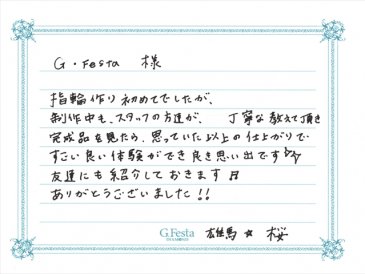 G・Festa 様
指輪作り初めてでしたが、
制作中も、スタッフの方達が、丁寧な教えて頂き
完成品を見たら、思っていた以上の仕上がりで
すごい良い体験ができ良き思い出です☆
友達にも紹介しておきます♬
ありがとうございました!!
G.Festa
雄馬 ☆ 桜